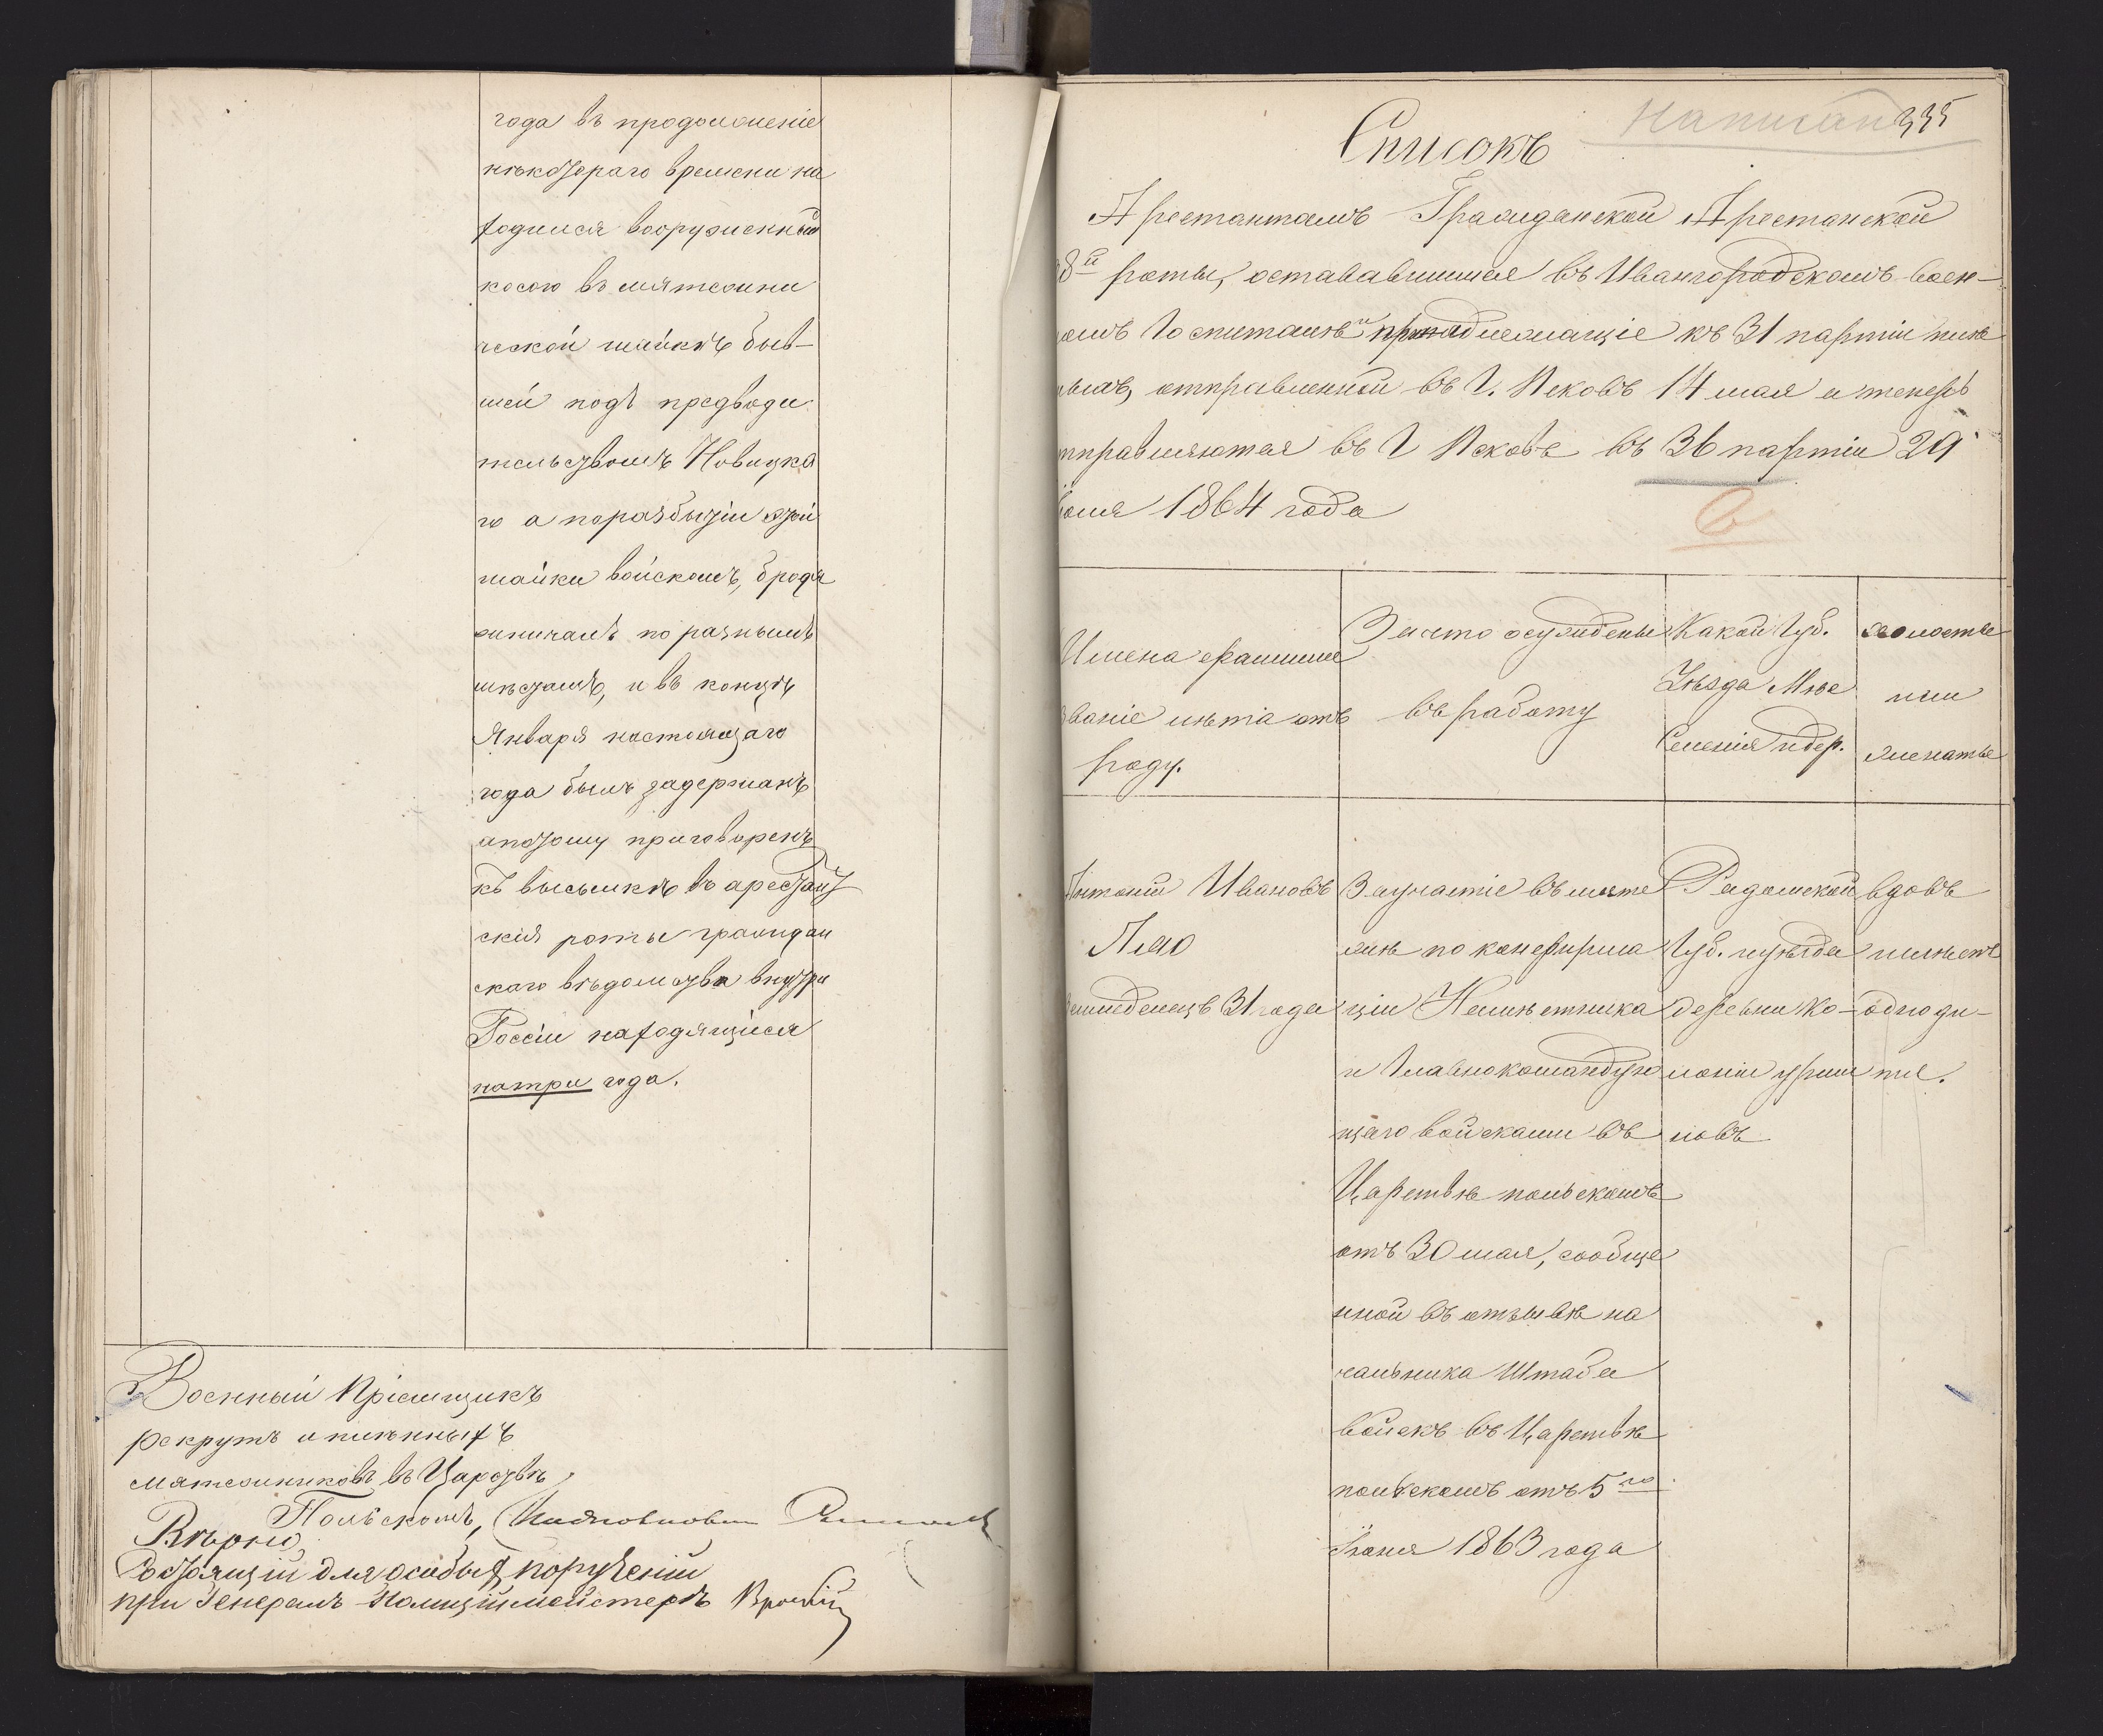 года въ продолженіе
нѣкотораго времени на
ходился вооруженный
косою въ мятежни
ческой шайкѣ быв-
шей подъ предводи
тельствомъ Новицка
го а поразбитіи этой
шайки войскомъ, бродя
жничалъ по разнымъ
мѣстамъ, и въ концѣ
Января настоящаго
года былъ задержанъ
апотому приговоренъ
къ высылкѣ въ арестант
скія роты граждан
скаго вѣдомства внутри
Россіи находящіяся
натри года.
Военный Пріемщикъ
рекрутъ и плѣнныхъ
мятежниковъ въ Царствѣ
Польскомъ,
Вѣрно,
Состоящій для особыхъ порученій
при Генералъ-Полиціймейстерѣ
Написан 335
Списокъ
Арестантамъ Гражданской Арестанской
8й роты, остававшимся въ Ивангородскомъ воен-
омъ Госпиталѣ и принадлежащіе къ 31 партіи плѣн
нымъ, отправленной въ г. Псковъ 14 мая и теперь
тправляются въ г Псковъ въ 36 партіи 29
Іюня 1864 года
6
Имена фамиліи
званіе илѣта отъ
роду.
Зачто осуждены
въ работу
Какой Губ.
Уѣзда Мѣс
Селенія идер.
холостые
или
женатые
Антоній Ивановъ
Плао
Земледелецъ 31 года
Заучастіе въ мяте
жѣ по конфирма
ціи Намѣстника
и Главнокомандую
щаго войсками въ
Царствѣ польскомъ
отъ 30 мая, сообще
нной въ отзывѣ на
чальника Штаба
войскъ въ Царствѣ
польскомъ отъ 5го
Іюня 1863 года
Радомской
Губ. иуѣзда
деревни Ко-
лоніи урши
новъ
вдовъ
имѣетъ
одно ди-
тя.